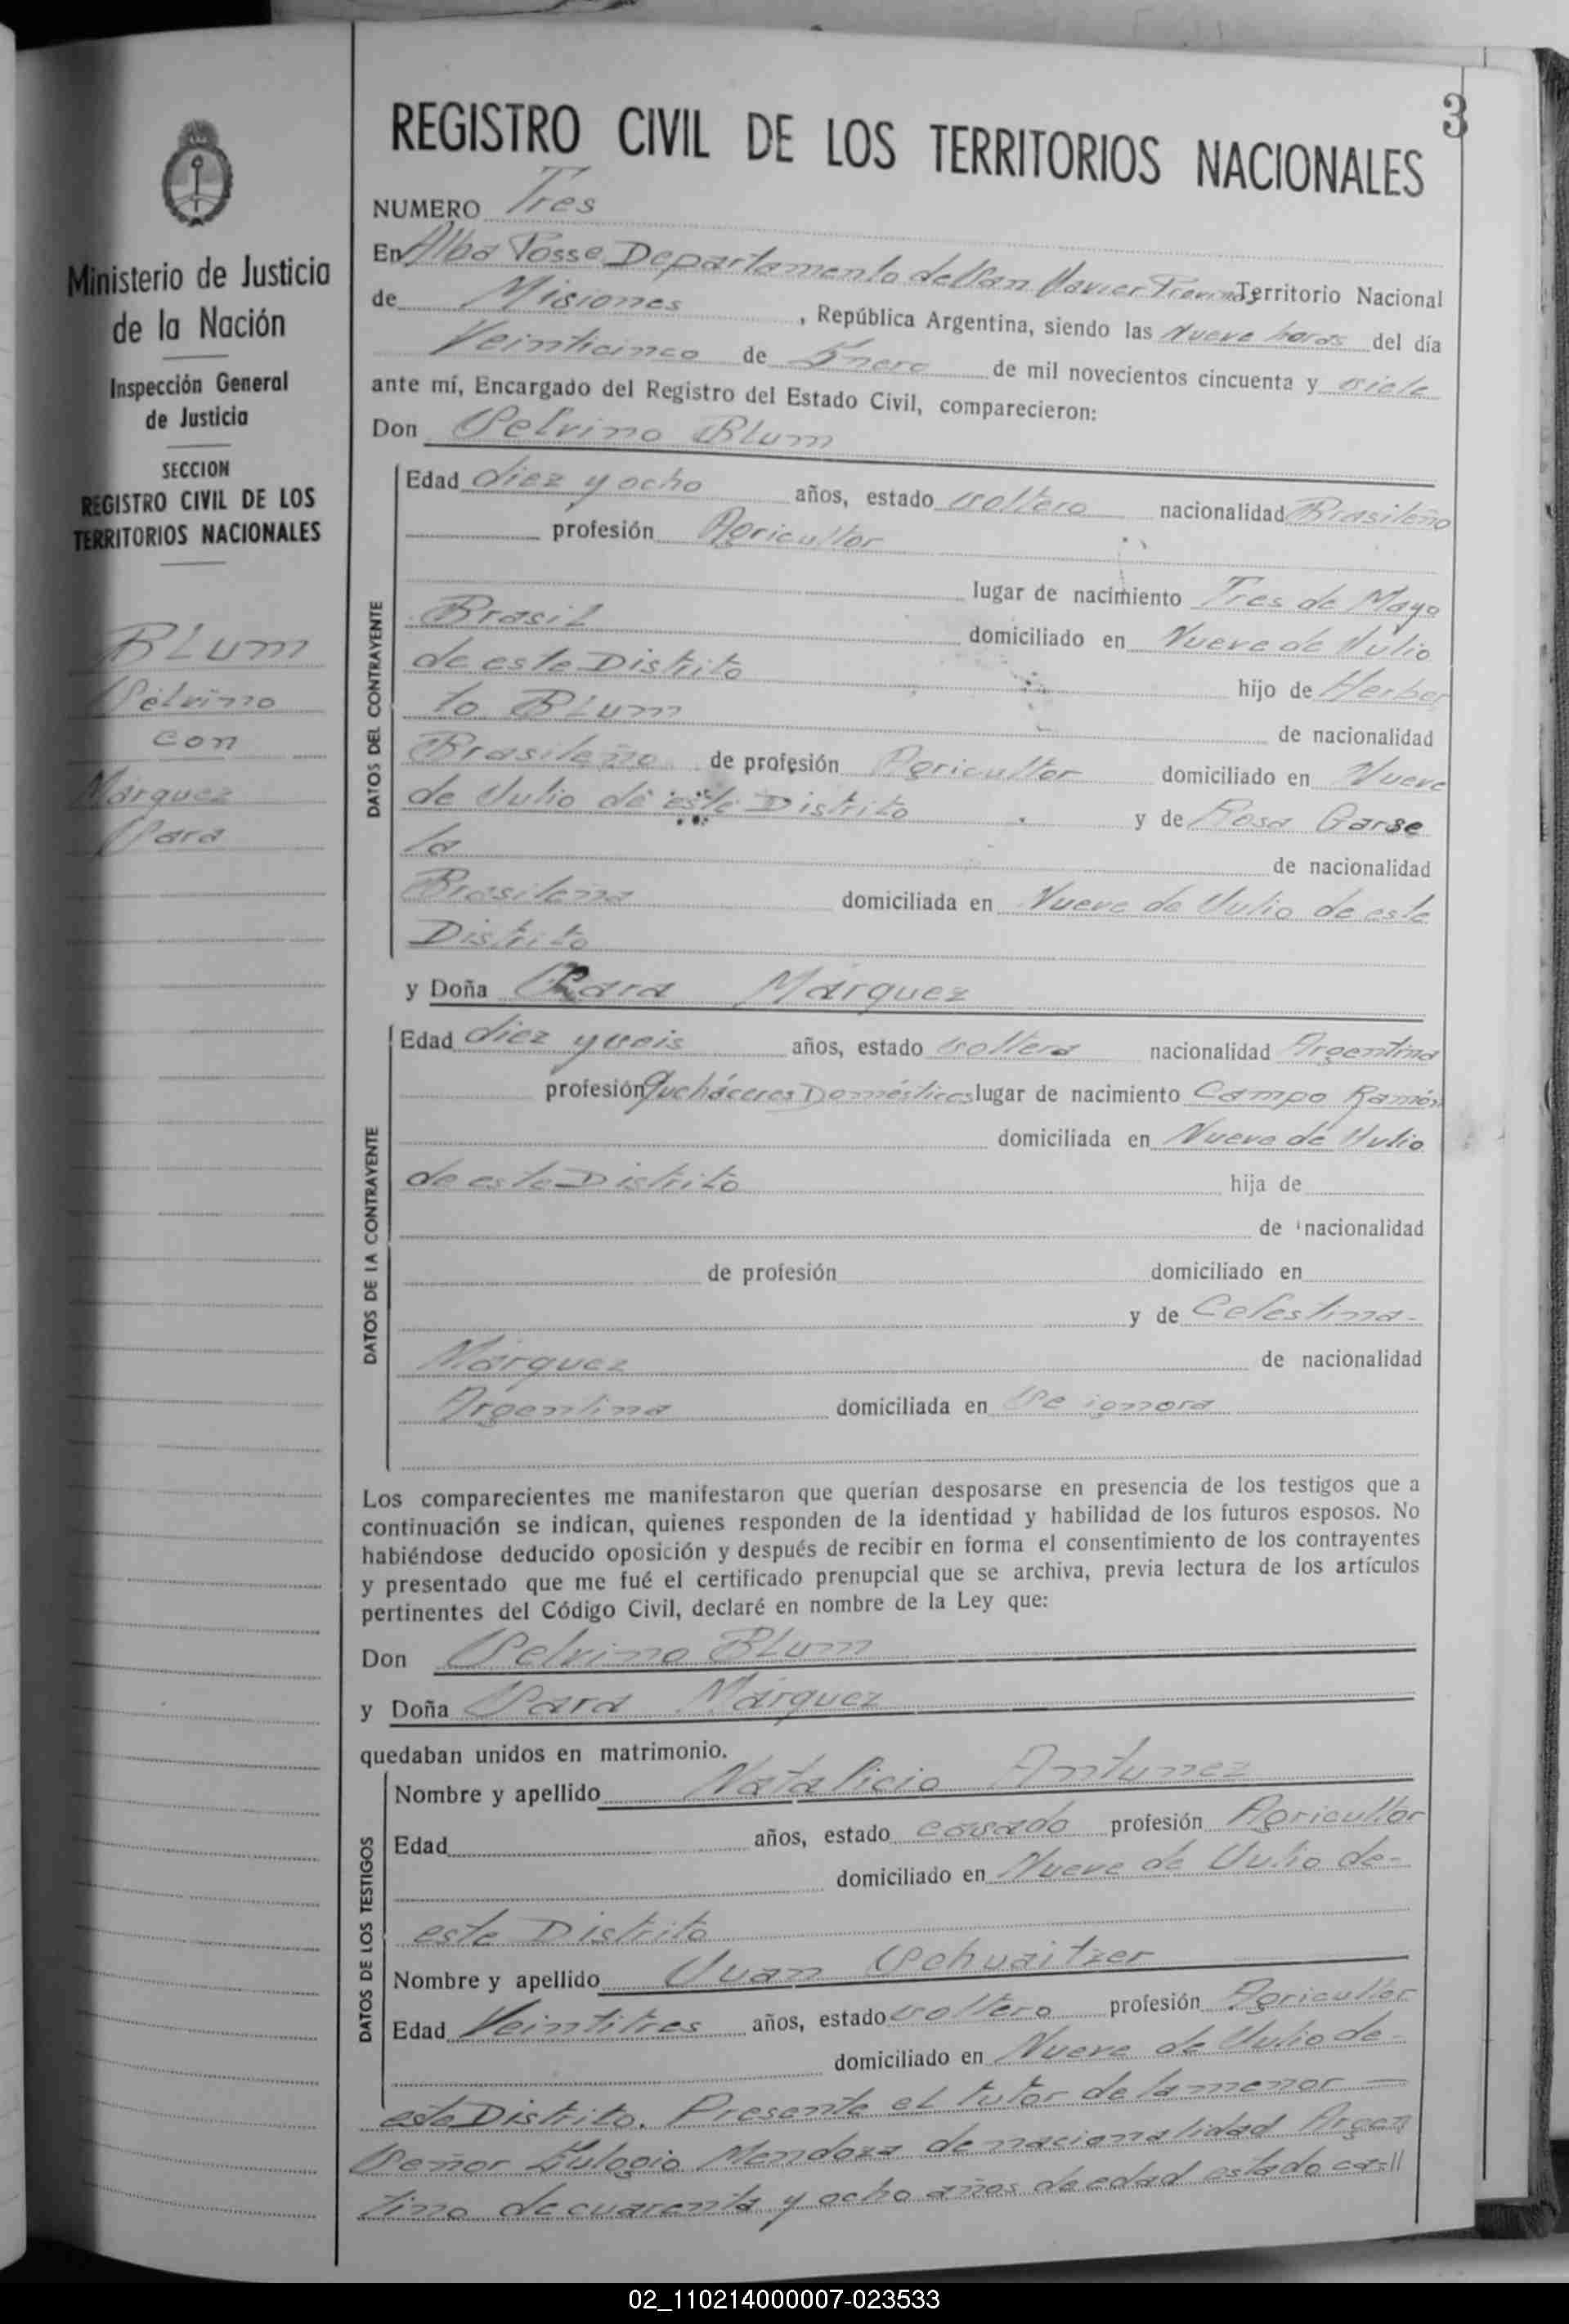 3
REGISTRO CIVIL DE LOS TERRITORIOS NACIONALES
NUMERO Tres
En Alba Posse Departamento de San Javier Provincia Territorio Nacional
de Misiones, República Argentina, siendo las Nueve horas del día
Veinticinco de Enero de mil novecientos cincuenta y siete
ante mí, Encargado del Registro del Estado Civil, comparecieron:
Don Selvino Blum
Edad diez y ocho años, estado soltero nacionalidad Brasileño
profesión Agricultor
lugar de nacimiento Tres de Mayo
Brasil domiciliado en Nueve de Julio
de este Distrito hijo de Herber
to Blum de nacionalidad
Brasileño de profesión Agricultor domiciliado en Nueve
de Julio de este Distrito y de Rosa Garse
la de nacionalidad
Brasileña domiciliada en Nueve de Julio de este
Distrito
y Doña Sara Márquez
Edad diez y seis años, estado soltera nacionalidad Argentina
profesión Quehàceres Domésticos lugar de nacimiento Campo Ramón
domiciliada en Nueve de Julio
de este Distrito hija de
de nacionalidad
de profesión domiciliado en
y de Celestina-
Márquez de nacionalidad
Argentina domiciliada en Se ignora
Los comparecientes me manifestaron que querían desposarse en presencia de los testigos que a
continuación se indican, quienes responden de la identidad y habilidad de los futuros esposos. No
habiéndose deducido oposición y después de recibir en forma el consentimiento de los contrayentes
y presentado que me fué el certificado prenupcial que se archiva, previa lectura de los artículos
pertinentes del Código Civil, declaré en nombre de la Ley que:
Don Selvino Blum
y Doña Sara Márquez
quedaban unidos en matrimonio.
Nombre y apellido Natalicio Antunez
Edad años, estado casado profesión Agricultor
domiciliado en Nueve de Julio de-
este Distrito
Nombre y apellido Juan Schuaitzer
Edad Veintitres años, estado soltero profesión Agricultor
domiciliado en Nueve de Julio de-
este Distrito. Presente el tutor de la menor —
Señor Eulogio Mendoza de nacionalidad Argen
tino de cuarenta y ocho años de edad estado ca-//
DATOS DEL CONTRAYENTE
DATOS DE LA CONTRAYENTE
DATOS DE LOS TESTIGOS
Ministerio de Justicia
de la Nación
Inspección General
de Justicia
SECCION
REGISTRO CIVIL DE LOS
TERRITORIOS NACIONALES
BLUM
Selvino
con
Márquez
Sara
02_110214000007-023533